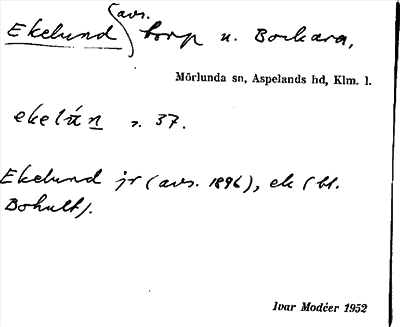 Ekelund (avs.) torp u. Bockara,
Mörlunda sn, Aspelands hd, Klm. l.
ekelún s. 37.
Ekelund jr (avs. 1896), ek (bl.
Bohult).
Ivar Modéer 1952